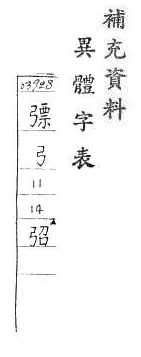 補充資料
異體字表
03928
弓
11
14
弨